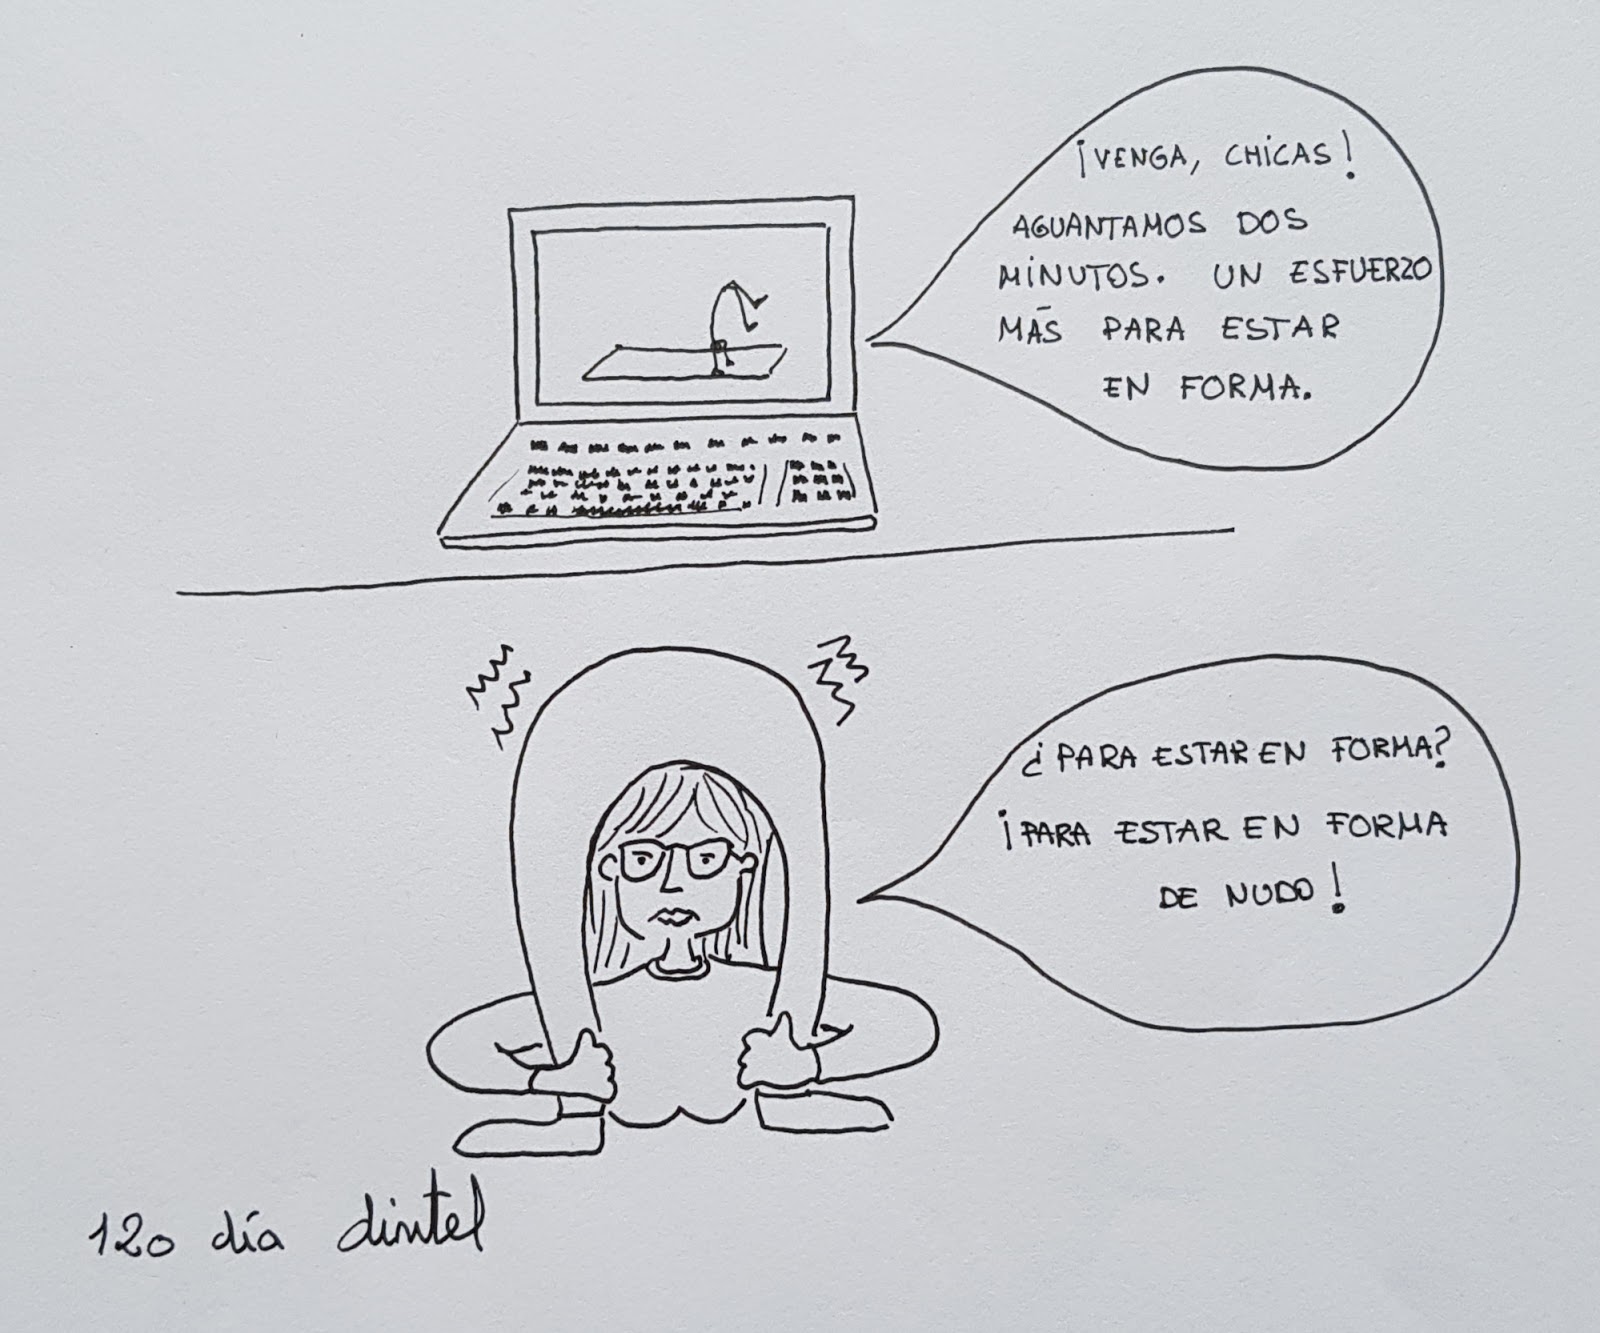 ¡VENGA, CHICAS!
AGUANTAMOS DOS
MINUTOS. UN ESFUERZO
MÁS PARA ESTAR
EN FORMA.
¿PARA ESTAR EN FORMA?
¡PARA ESTAR EN FORMA
DE NUDO!
120 día dintel